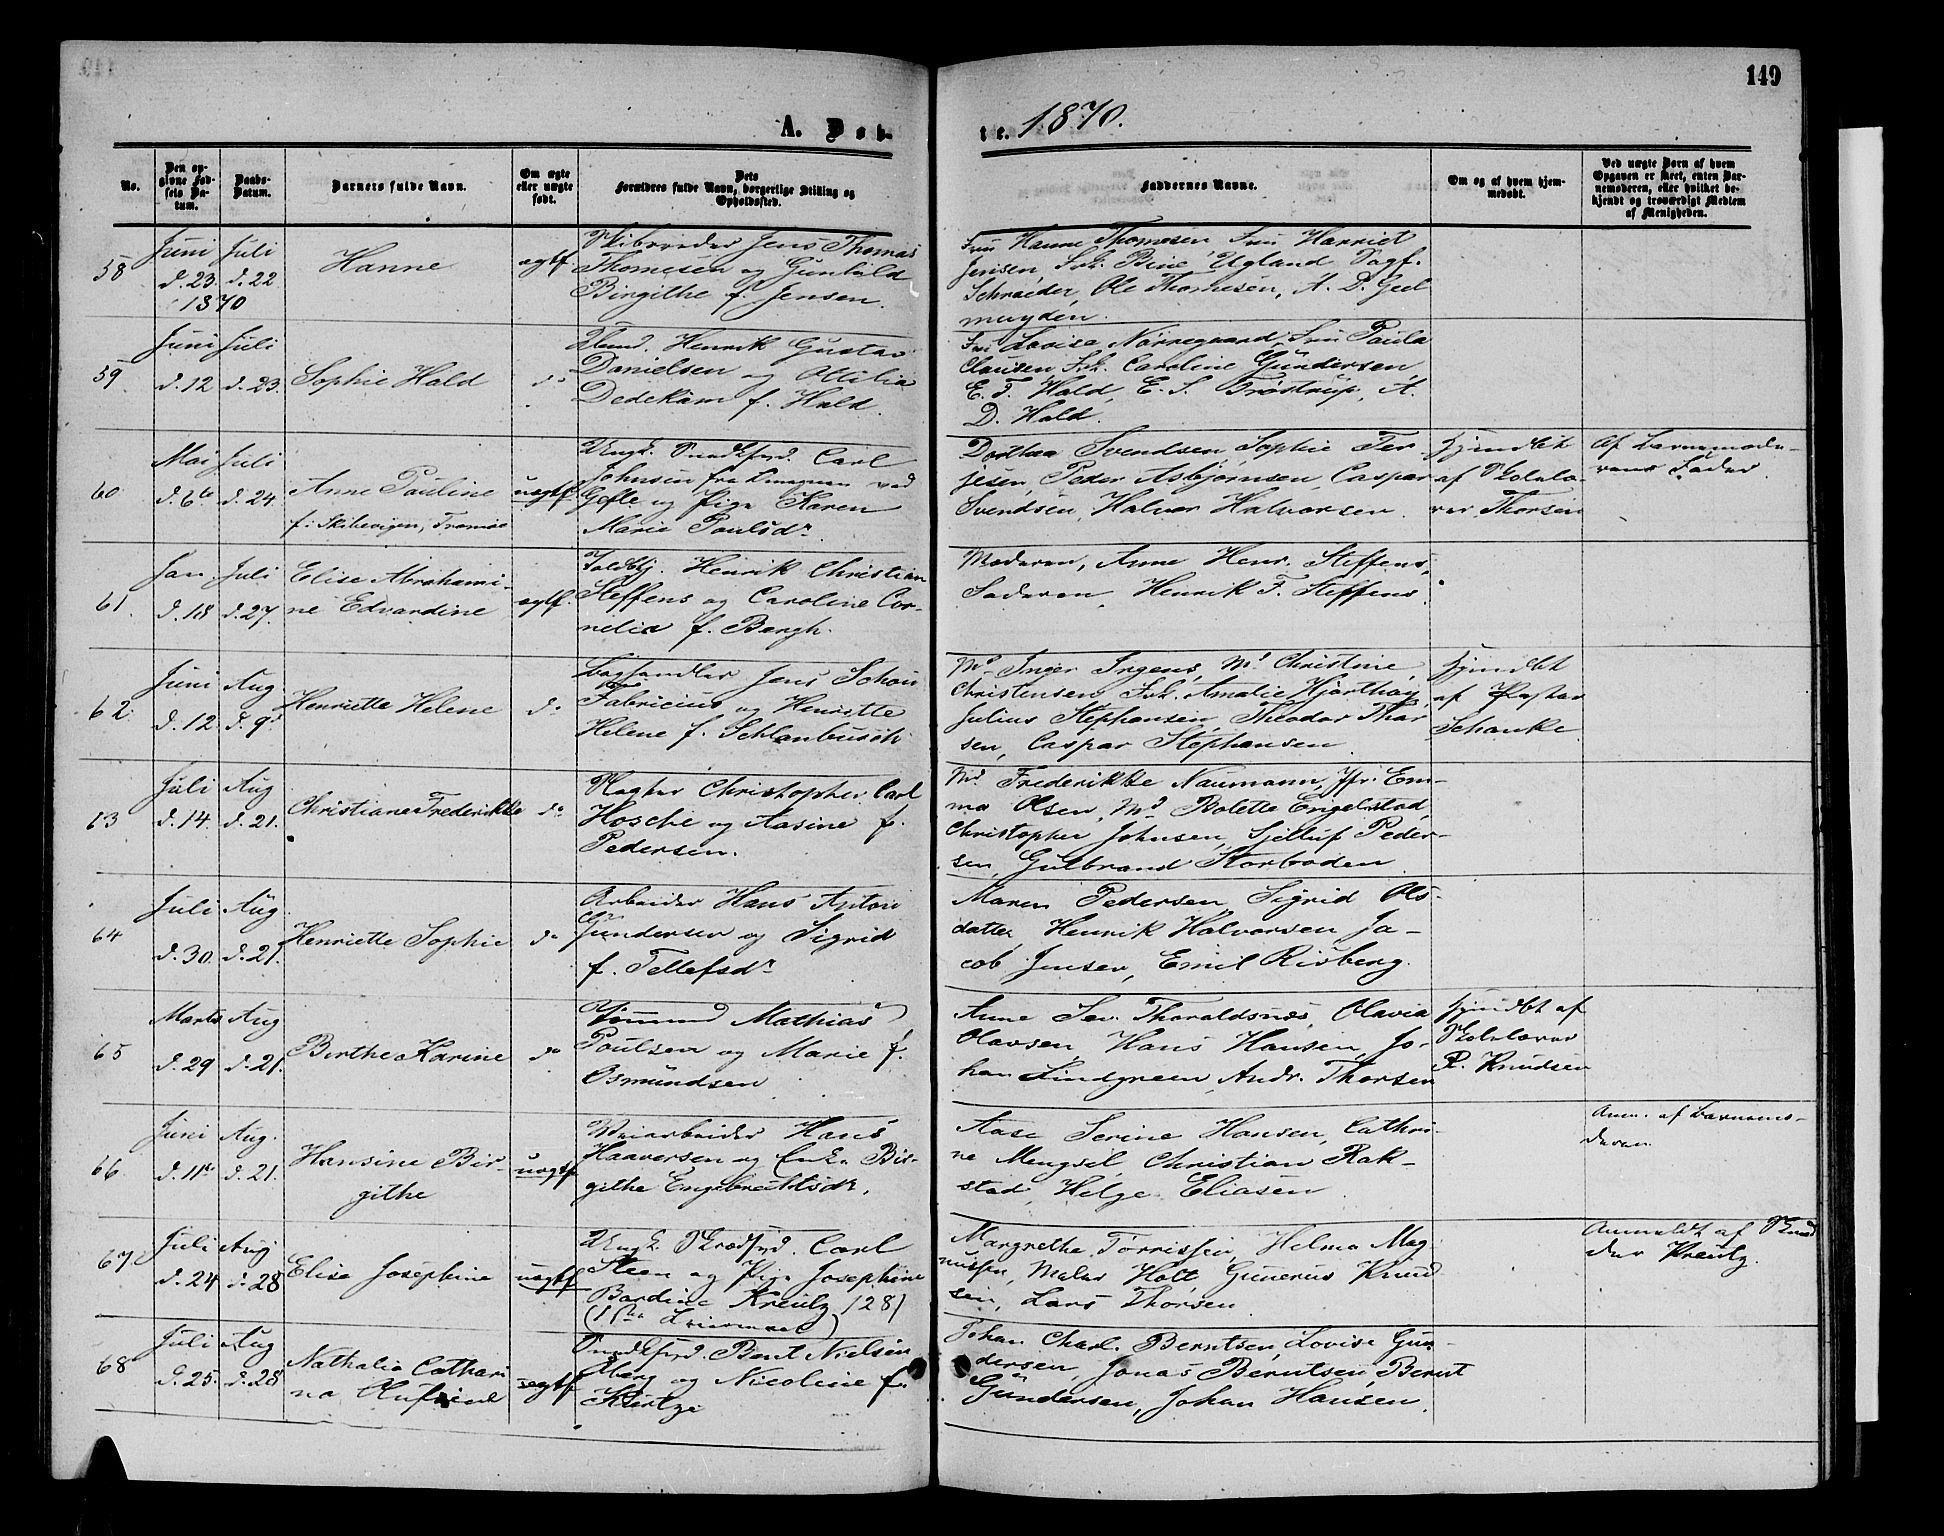 149
A. Døb-
te. 1870.
No.
Den op-
givne Fød-
sels Da-
tum.
Daabs-
Datum.
Barnets fulde Navn.
Om ægte
eller uægte
født.
Dets
Forældres fulde Navn, borgerlige Stilling og
Opholdssted.
Faddernes Navne.
Om og af hvem hjem-
medøbt.
Ved uægte Børn af hvem
Opgaven er skeet, enten Bar-
nemoderen, eller hvilket be-
kjendt og troværdigt Medlem
af Menigheden.
58
Juni
d. 23
1870
Juli
d. 22
Hanne
ægtf
Skibsreder Jens Thomas
Thomesen og Gunhild
Birgithe f. Jensen.
Fru Hanne Thomesen, Fru Harriet
Jensen, Frk. Bine Ugland, Sagf.
Schrøder, Ole Thomesen, A. D. Geel
muyden.
59
Juni
d. 12
Juli
d. 23.
Sophie Hald
do
Henrik Gustav
Danielsen og Ottilia
Dedekam f. Hald.
Fru Lovise Nørregaard, Fru Paula
Clausen, Frk. Caroline Gundersen,
E. T. Hald, E. S. Trøstrup, A.
D. Hald.
60
Mai
d. 6te
Juli
d. 24.
Anne Pauline
f. i Skilsvigen, Tromøe
uægtf
Ungk. Snedksvd. Carl
Johnsen fra ved
Gefle og Pige Karen
Marie Poulsdr.
Dorthea Svendsen, Sophie Ter
jesen, Peder Asbjørnsen, Caspar
Svendsen, Halvor Halvorsen.
Hjmdbt
af Skolelæ
rer Thorsen
Af Barnemode-
rens Fader.
61.
Jan
d. 18
Juli
d. 27.
Elise Abrahami-
ne Edvardine
ægtf.
Toldbtj. Henrik Christian
Steffens og Caroline Cor-
nelia f. Bergh.
Moderen, Anne Henr. Steffens,
Faderen, Henrik F. Steffens.
62
Juni
d. 12
Aug
d. 9d
Henriette Helene
do
Boghandler Jens Schou
Fabricius og Henriette
Helene f. Schlanbusch
Md Inger Ingens, Md Christine
Christensen, Frk. Amalie Hjorthøy,
Julius Stephansen, Theodor Thor
sen, Caspar Stephansen
Hjmdbt
af Pastor
Schanke
63
Juli
d. 14.
Aug
d. 21.
Christiane Frederikke
do
Slagter Christopher Carl
Hosche og Aasine f.
Pedersen.
Md. Frederikke Naumann, Jfr. Em-
ma Olsen, Md Bolette Engelstad,
Christopher Johnsen, Peder-
sen, Gulbrand Storboden
64
Juli
d. 30.
Aug
d. 21.
Henriette Sophie
do
Arbeider Hans Anton
Gundersen og Sigrid
f. Tellefsdr
Maren Pedersen, Sigrid Ols-
datter, Henrik Halvorsen, Ja-
cob Jensen, Emil Risberg.
65
Marts
d. 29
Aug
d. 21.
Birthe Karine
do
Tømmmd Mathias
Poulsen og Marie f.
Osmundsen
Anne Sev. Thoraldsnes, Olavia
Olavsen, Hans Hansen, Jo-
han Lindgreen, Andr. Thorsen
Hjmdbt af
Skolelærer
P. Knudsen
66.
Juni
d. 11te
Aug.
d. 21.
Hansine Bir-
githe
uægtf
Veiarbeider Hans
Haaversen og Enke Bir-
githe Engebrechtsdr.
Aase Serine Hansen, Cathri-
ne Mengsil, Christian Rak-
stad, Helge Eliasen
Anm. af Barnemo-
deren
67
Juli
d. 24
Aug
d. 28
Elise Josephine
uægtf
Ungk. Skrædsvd. Carl
Steen og Pige Josephine
Bardine Kreutz (28)
(1ste Leiermaal)
Margrethe Torrissen, Helma Mag
nussen, Maler Holt, Gunerus Knud
sen, Lars Thorsen
Anmeldt af
der Kreutz.
68
Juli
d. 25.
Aug
d. 28
Nathalie Cathari
na Rufine
ægtf
Snedksvd. Bent Nielsen
Aberg og Nicoline f.
Kiertze
Johan Charl. Berntsen, Lovise Gun-
dersen, Jonas Berntsen, Bernt
Gundersen, Johan Hansen.